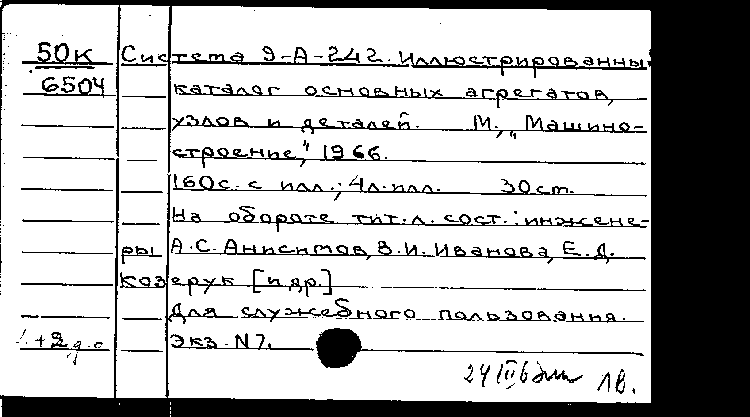 50К Система 9-А-242. Иллюстрированный
6504 каталог основных агрегатов,
узлов и деталей. М., "Машино-
строение," 1966.
160с. с илл.; 4л. илл. 30 cm.
На обороте тит. л. сост.: инжене-
ры А.С. Анисимов, В.И. Иванова, Е.Д.
Козерук [и др.]
Для служебного пользования.
Экз. N7.
24 III 1в.